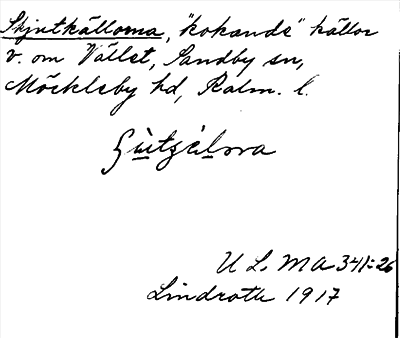 Skjutkällorna, "kokande" källor
v. om Vället, Sandby sn,
Möckleby hd, Kalm. l.
ULMA 341:26
Lindroth 1917